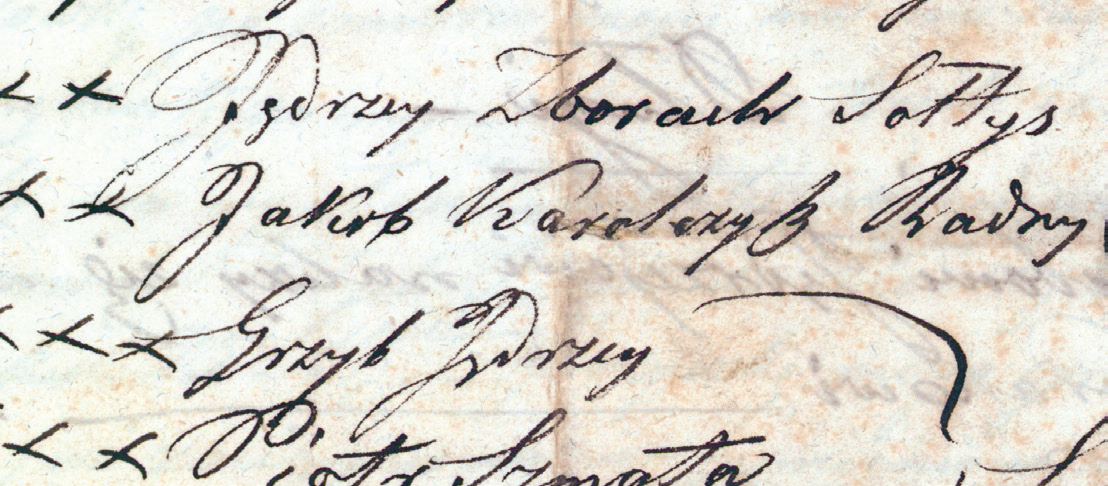 x x Jędrzey Zborach Sołtys
x x Jakob Karolczyk Radny
x x x Grzyb Jdrzey
x x Piotr Szmata